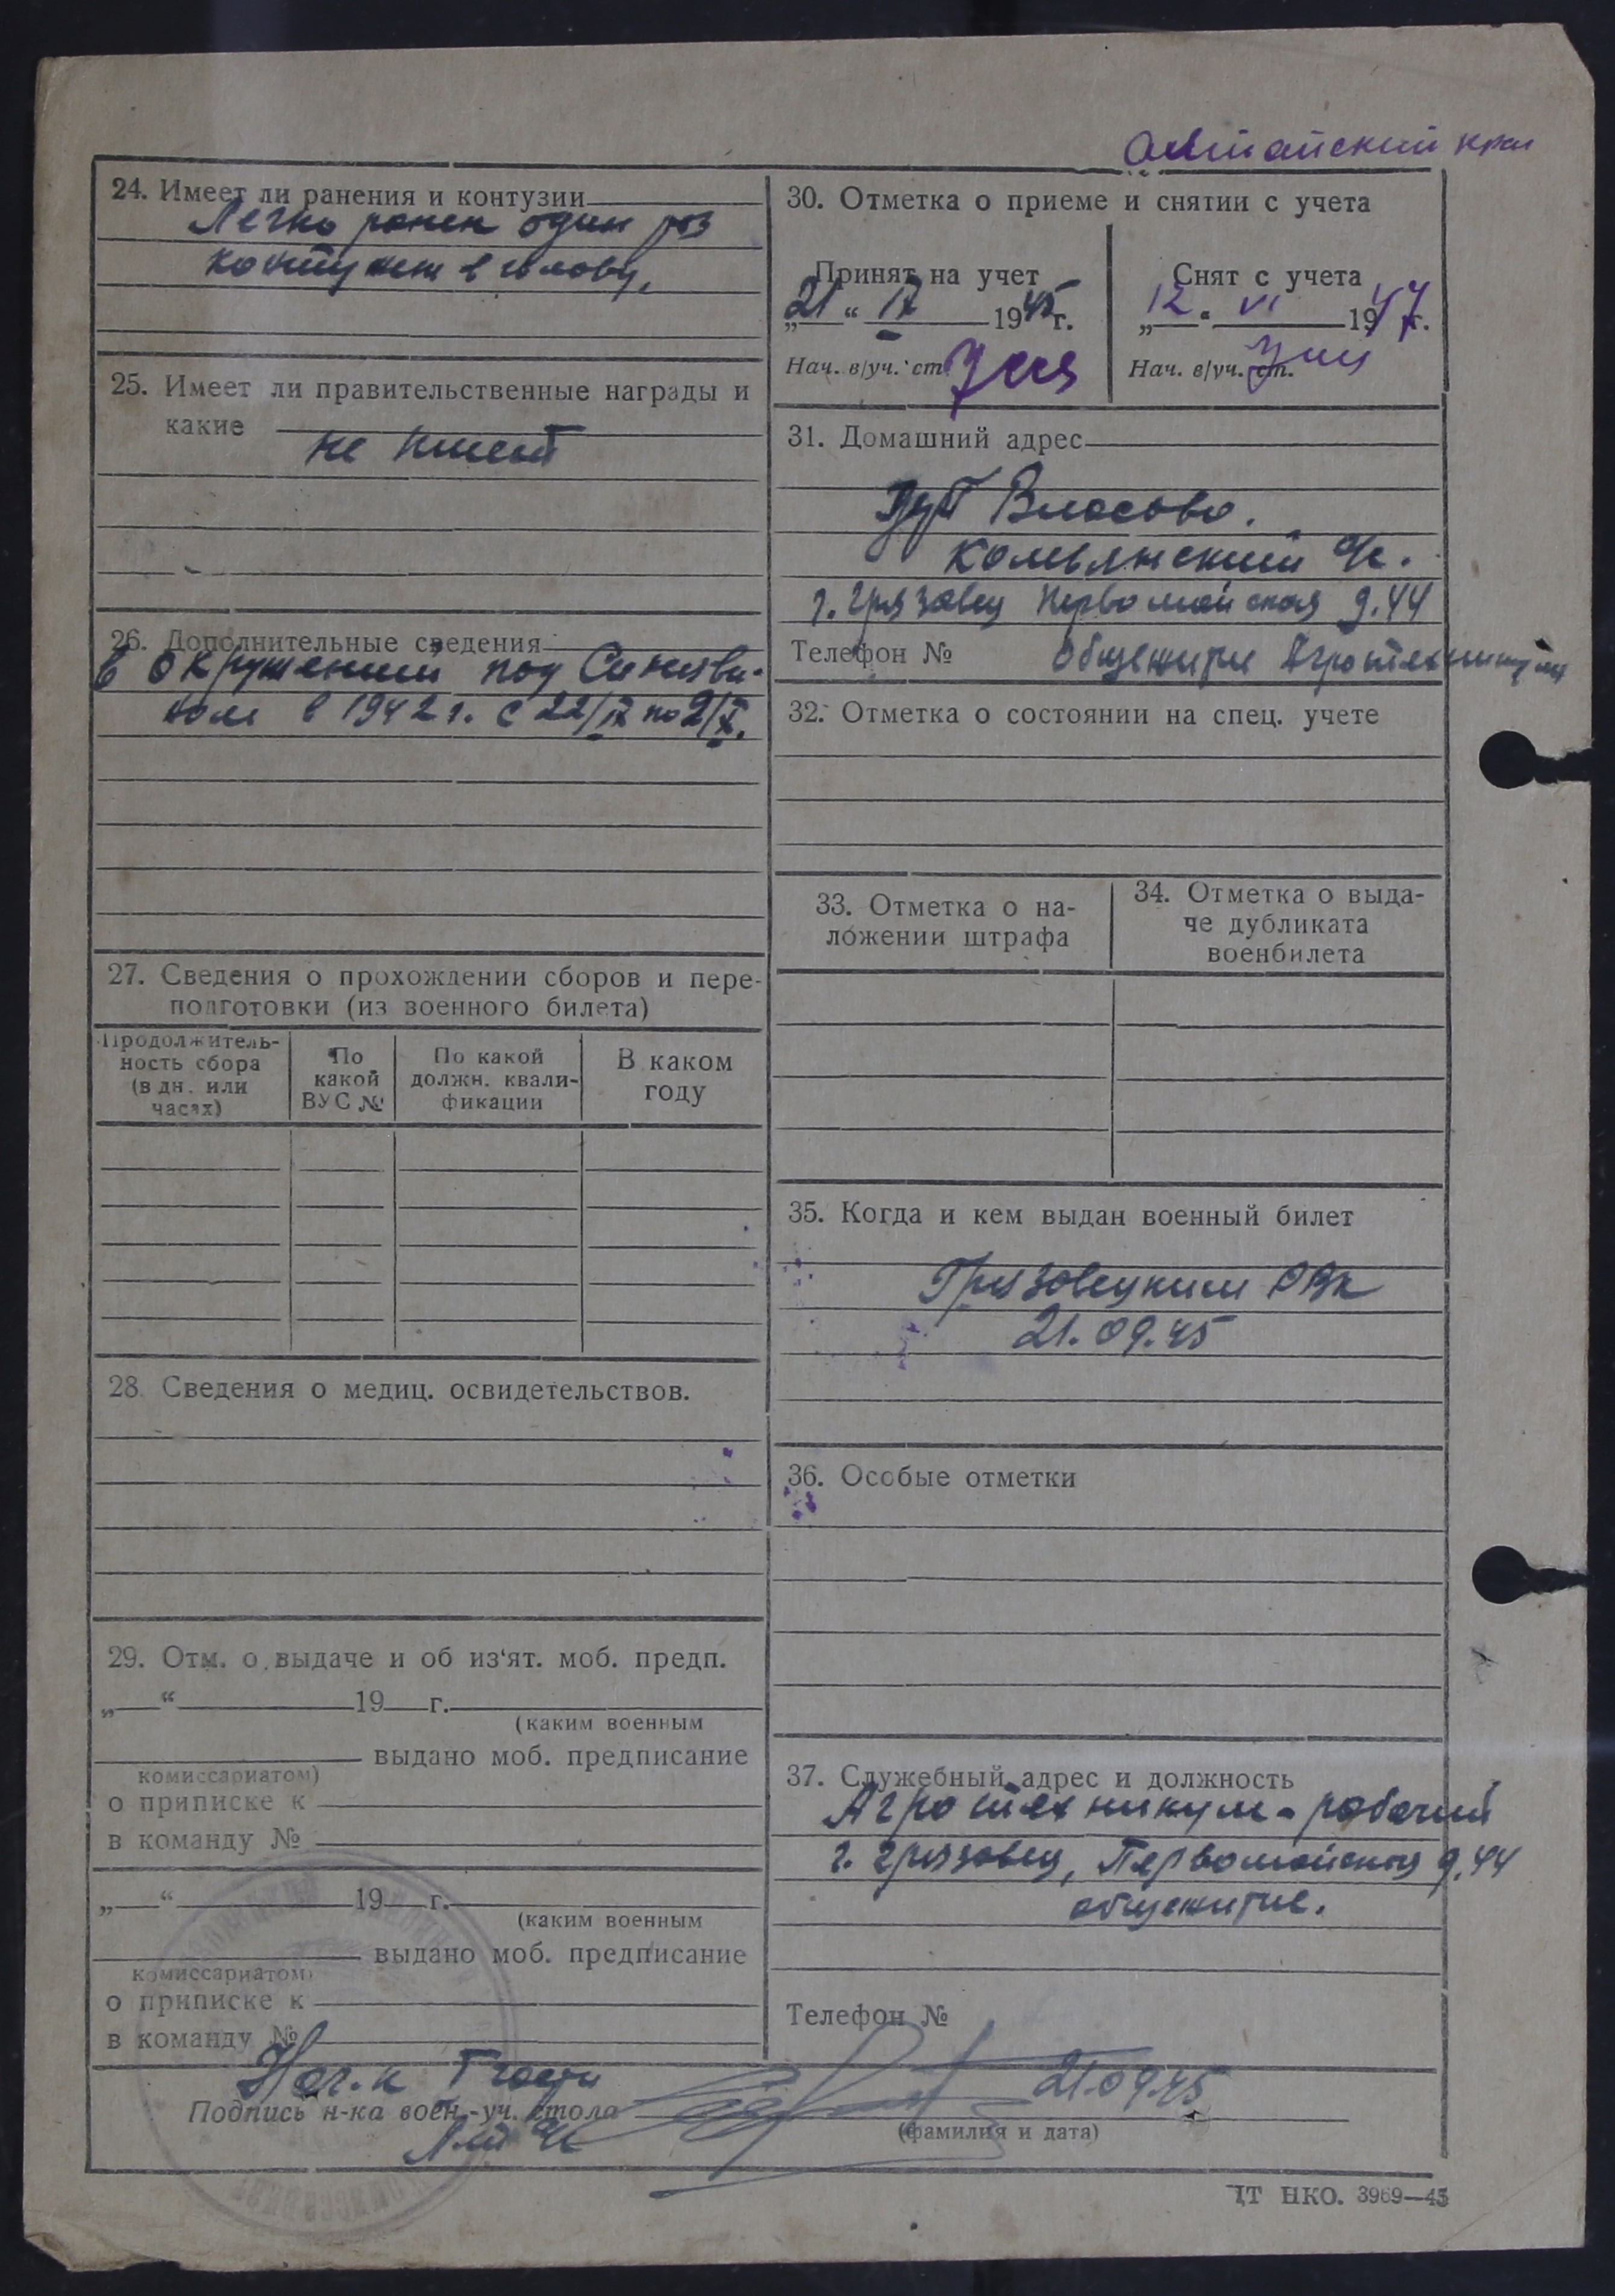 Алтайский край
24. Имеет ли ранения и контузии
Легко ранен один раз
контужен в голову.
25. Имеет ли правительственные награды и
какие
не имеет
26. Дополнительные сведения
в окружении под Синяви-
ном в 1942 г. с 22/IX по 2/X.
27. Сведения о прохождении сборов и пере-
подготовки (из военного билета)
Продолжитель-
ность сбора
(в дн. или
часах)
По
какой
ВУС №
По какой
должн. квали-
фикации
В каком
году
28. Сведения о медиц. освидетельствов.
29. Отм. о выдаче и об из'ят. моб. предп.
„ “ 19 г.
(каким военным
выдано моб. предписание
комиссариатом)
о приписке к
в команду №
„ “ 19 г.
(каким военным
выдано моб. предписание
комиссариатом)
о приписке к
в команду №
30. Отметка о приеме и снятии с учета
Принят на учет
„21“ IX 1945 г.
Нач. в/уч. ст.
Снят с учета
„12“ VI 1947 г.
Нач. в/уч. ст.
31. Домашний адрес
Власово.
Комьянский с/с.
г. Грязовец Первомайская д. 44
Телефон № Общежитие Агротехникума
32. Отметка о состоянии на спец. учете
33. Отметка о на-
ложении штрафа
34. Отметка о выда-
че дубликата
военбилета
35. Когда и кем выдан военный билет
Грязовецким РВК
21.09.45
36. Особые отметки
37. Служебный адрес и должность
Агротехникум - рабочий
г. Грязовец, Первомайская д. 44
общежитие.
Телефон №
Нач.к I части
21.09.45
Подпись н-ка воен.-уч. стола
(фамилия и дата)
IТ НКО. 3969—45